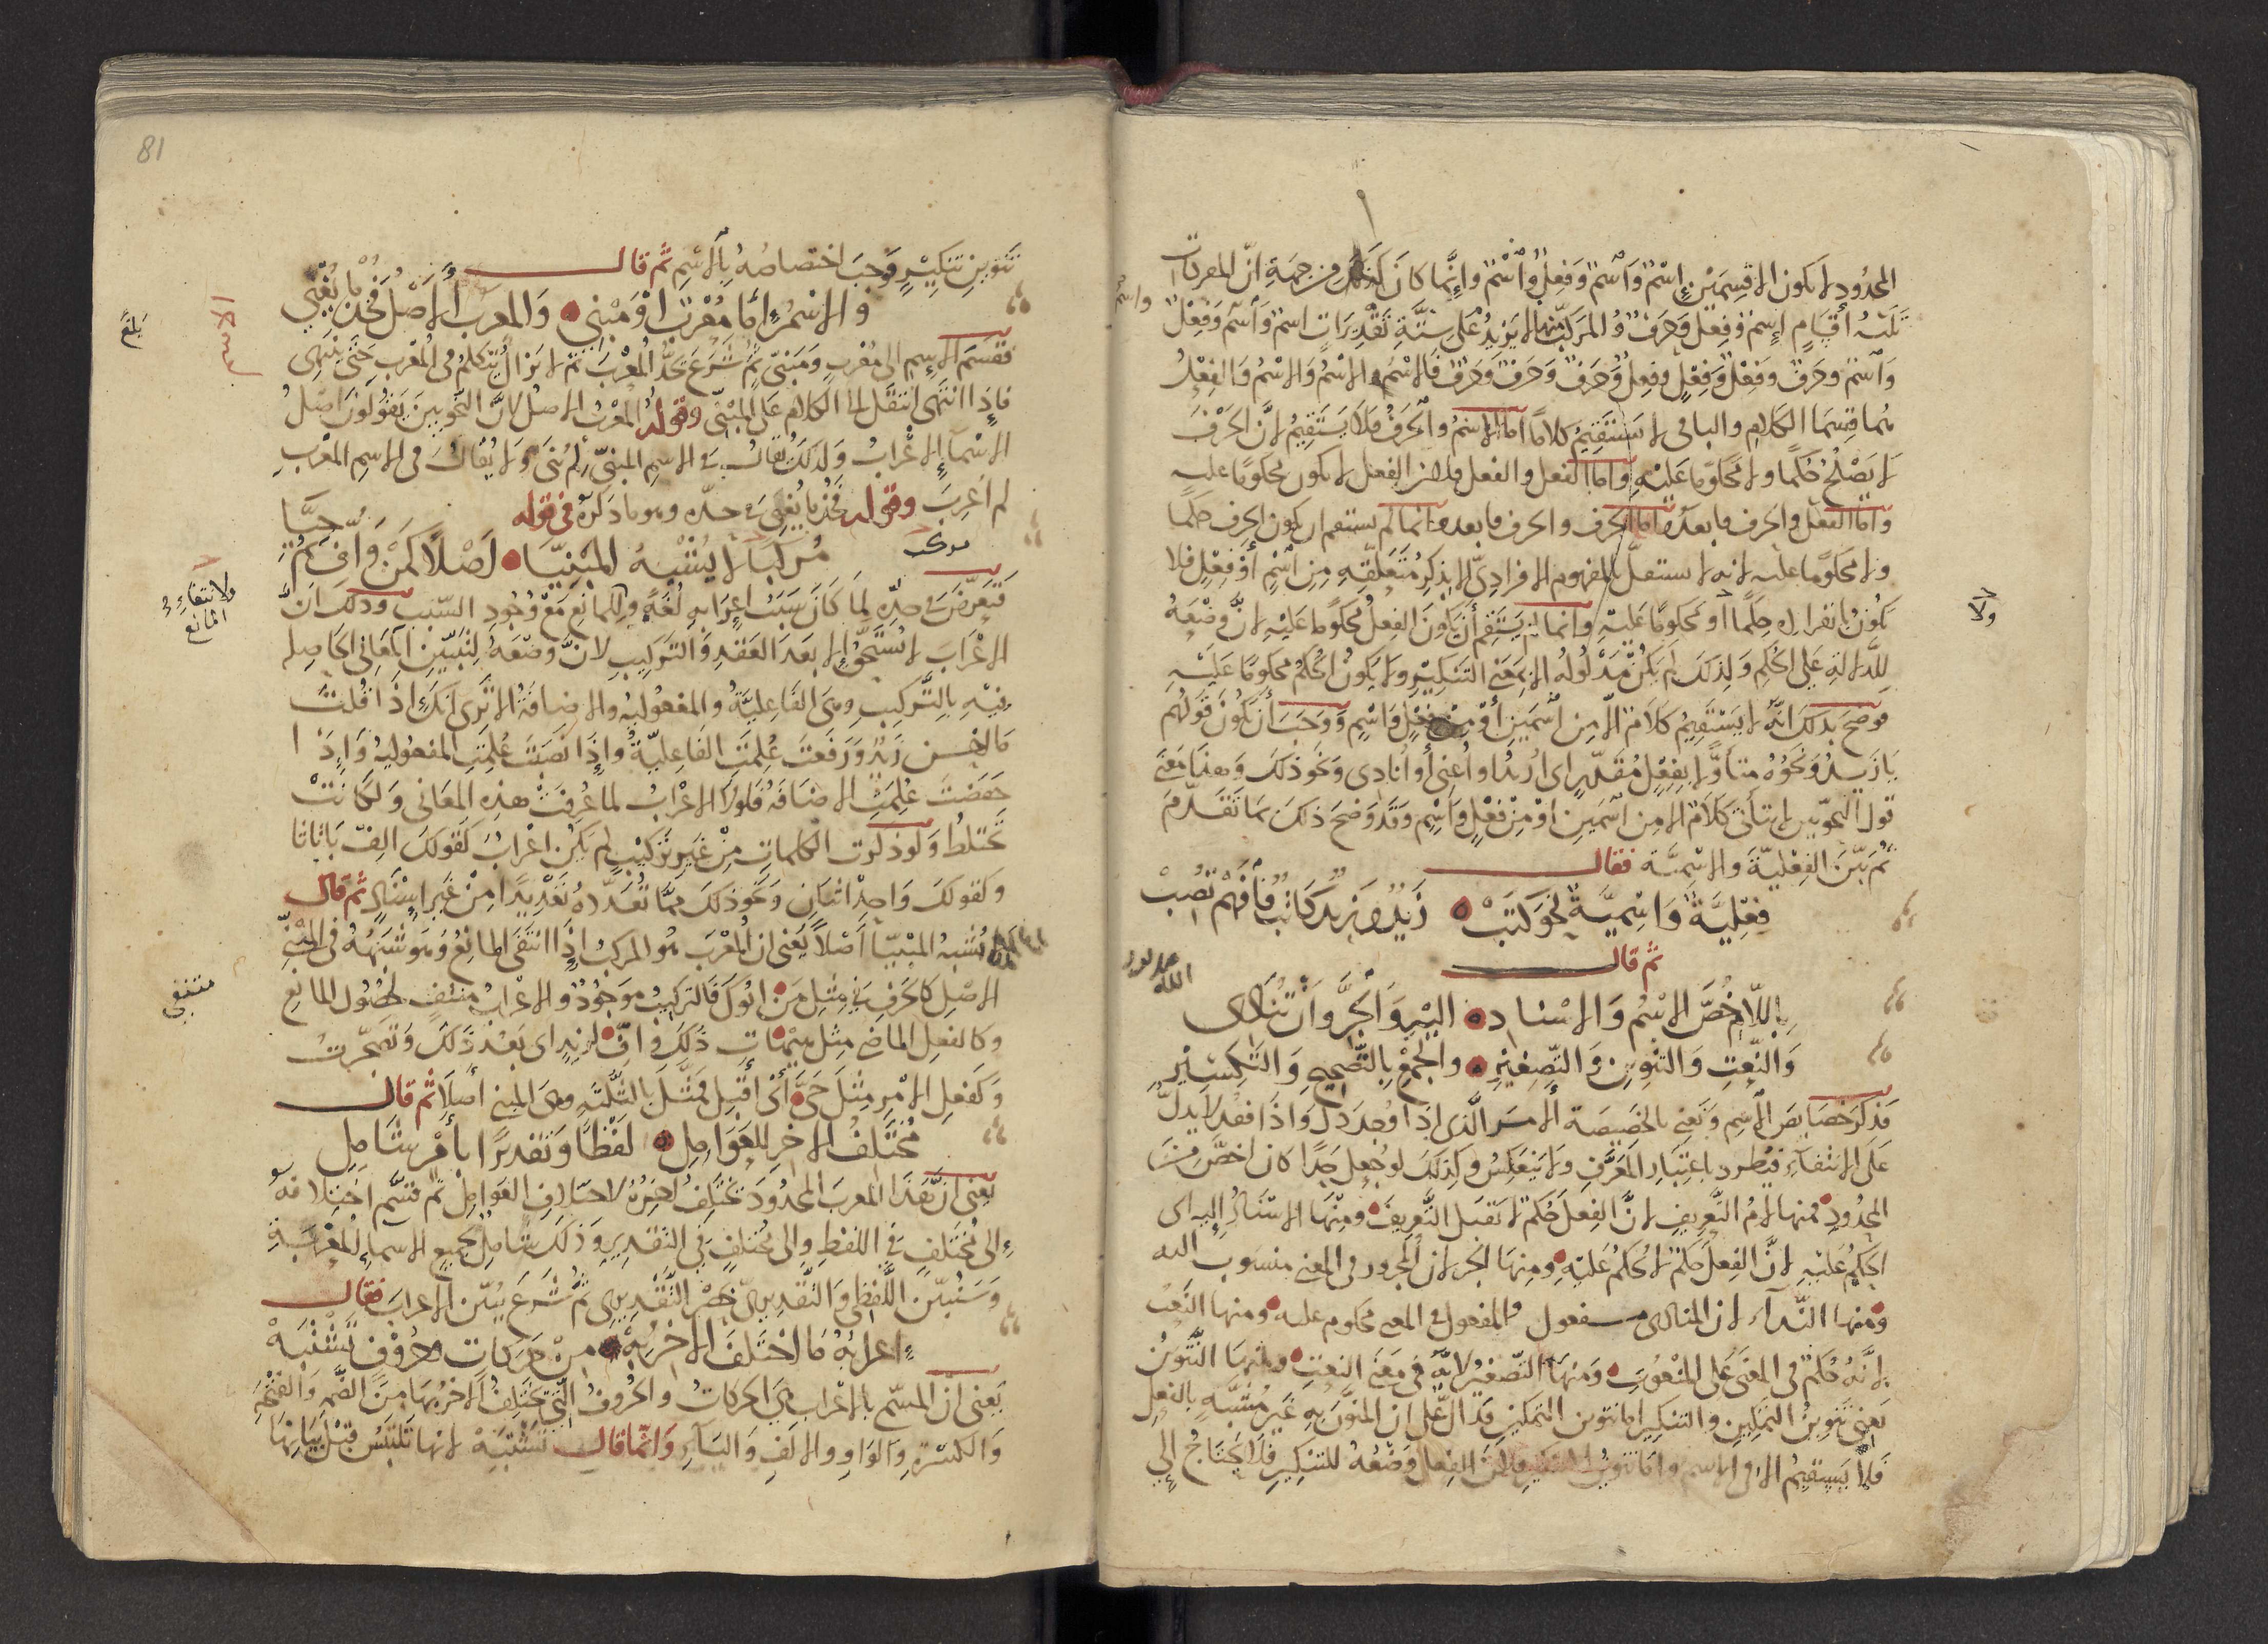 المحدود لا يكون الا قسمين إسم واسم وفعل واسم وإنما كان كذلك من جهة ان المفردات
ثلثة أقسام إسم وفعل وحرف والمركب منها لا يزيد على ستة تقديرات اسم واسم وفعل
واسم
واسم وحرف وفعل وفعل وفعل وحرف وحرف وحرف فالاسم والاسم والاسم والفعل
هما قسما الكلام والباقي لا يستقيم كلاما اما الاسم والحرف فلا يستقيم لان الحرف
لا يصلح حكما ولا محكوما عليه واما الفعل والفعل فلان الفعل لا يكون محكوما عليه
واما الفعل والحرف فما بعده اما الحرف والحرف فما بعده انما لم يستقم ان يكون الحرف حكما
ولا محكوما عليه لانه لا يستقل بالمفهوم الافرادي الا بذكر متعلقه من اسم أو فعل فلا
يكون بانفراده حكما أو محكوما عليه وانما لم يستقم أن يكون الفعل محكوما عليه لان وضعه
ولا
للدلالة على الحكم ولذلك لم يكن مدلوله الا بمعنى التنكير ولا يكون الحكم محكوما عليه
فوضح بذلك انه لا يستقيم كلام الا من اسمين أو من فعل واسم ووجب أن يكون قولهم
يا زيد ونحوه متأولا بفعل مقدر اي اريد او أعني أو أنادي ونحو ذلك وهذا معنى
قول النحويين لا يتأتى كلام الا من اسمين او من فعل واسم وقد وضح ذلك بما تقدم
ثم بين الفعلية والاسمية فقال
فعلية واسمية نحو كتب زيد وزيد كاتب فافهم تصب
ثم قال
باللام خص الاسم والاسناد اليه والجر وان تنادي
والنعت والتنوين والتصغير والجمع بالتصحيح والتكسير
فذكر خصايص الاسم ونعني بالخصيصة الامر الذي اذا وجد دل واذا فقد لا يدل
على الانتفاء فيطرد باعتبار المعرف ولا ينعكس وكذلك لو جعل حدا كان اخص من
المحدود فمنها لام التعريف لان الفعل حكم لا تقبل التعريف ومنها الاسناد إليه اي
الحكم عليه لان الفعل حكم لا يحكم عليه ومنها الجر لان المجرور في المعنى منسوب اليه
ومنها النداء لان المنادى مفعول والمفعول في المعنى محكوم عليه ومنها النعت
لانه حكم في المعنى على المنعوت ومنها التصغير لانه في معنى النعت ومنها التنوين
يعني تنوين التمكين والتنكير اما تنوين التمكين فدال على ان المنون به غير مشبه بالفعل
فلا يستقيم الا في الاسم واما تنوين التنكير فلان الفعل وضعه للتنكير فلا يحتاج إلى
81
تنوين تنكير فوجب اختصاصه بالاسم ثم قال
والاسم إما معرب او مبني والمعرب الأصل فخذ ما يغني
فقسم الاسم الى معرب ومبني ثم شرع يحد المعرب ثم لا يزال يتكلم في المعرب حتى ينتهى
بلغ
فإذا انتهى انتقل الى الكلام على المبني وقوله المعرب الاصل لان النحويين يقولون اصل
الاسماء الاعراب ولذلك يقال في الاسم المبني لم بني ولا يقال في الاسم المعرب
لم اعرب وقوله فخذ ما يغني في حده وهو ما ذكره في قوله
مركبا لا يشبه المبنيا اصلا كمن واف وحيا
مركب
فتعرض في حده لما كان سبب اعرابه لغة وللمانع مع وجود السبب وذلك ان
ولانتفاء
المانع
الاعراب لا يستحق إلا بعد العقد والتركيب لان وضعه لتبيين المعاني الحاصلة
فيه بالتركيب وهي الفاعلية والمفعولية والاضافة الا ترى انك إذا قلت
ما احسن زيد ورفعت علمت الفاعلية وإذا نصبت علمت المفعولية وإذا
خفضت علمت الاضافة فلولا الاعراب لما عرفت هذه المعاني ولكانت
تختلط ولو ذكرت الكلمات من غير تركيب لم يكن اعراب كقولك الف با تا ثا
وكقولك واحد اثنان ونحو ذلك مما تعدده تعديدا من غير إسناد ثم قال
لا يشبه المبنيا أصلا يعني ان المعرب هو المركب إذا انتفى المانع وهو شبهه في المبني
الاصل كالحرف في مثل من ابوك فالتركيب موجود والاعراب منتف لحصول المانع
منتفي
وكالفعل الماضي مثل هيهات ذلك واف لزيد اي بعد ذلك وتضجرت
وكفعل الامر مثل حي أي اقبل فمثل بالثلثة وهي المبني أصلا ثم قال
مختلف الاخر للعوامل لفظا وتقديرا بأمر شامل
يعني ان هذا المعرب المحدود يختلف اخره لاختلاف العوامل ثم قسم اختلافه
إلى مختلف في اللفظ والى مختلف في التقدير وذلك شامل لجميع الاسماء المعربة
وسنبين اللفظي والتقديري بحصر التقديري ثم شرع يبين الاعراب فقال
إعرابه ما اختلف الاخر به من حركات وحروف تشتبه
يعني ان المسمى بالاعراب هي الحركات والحروف التي يختلف الاخر بها من الضمة والفتحة
والكسرة والواو والالف والياء وانما قال تشتبه لانها تلتبس قبل بيانها